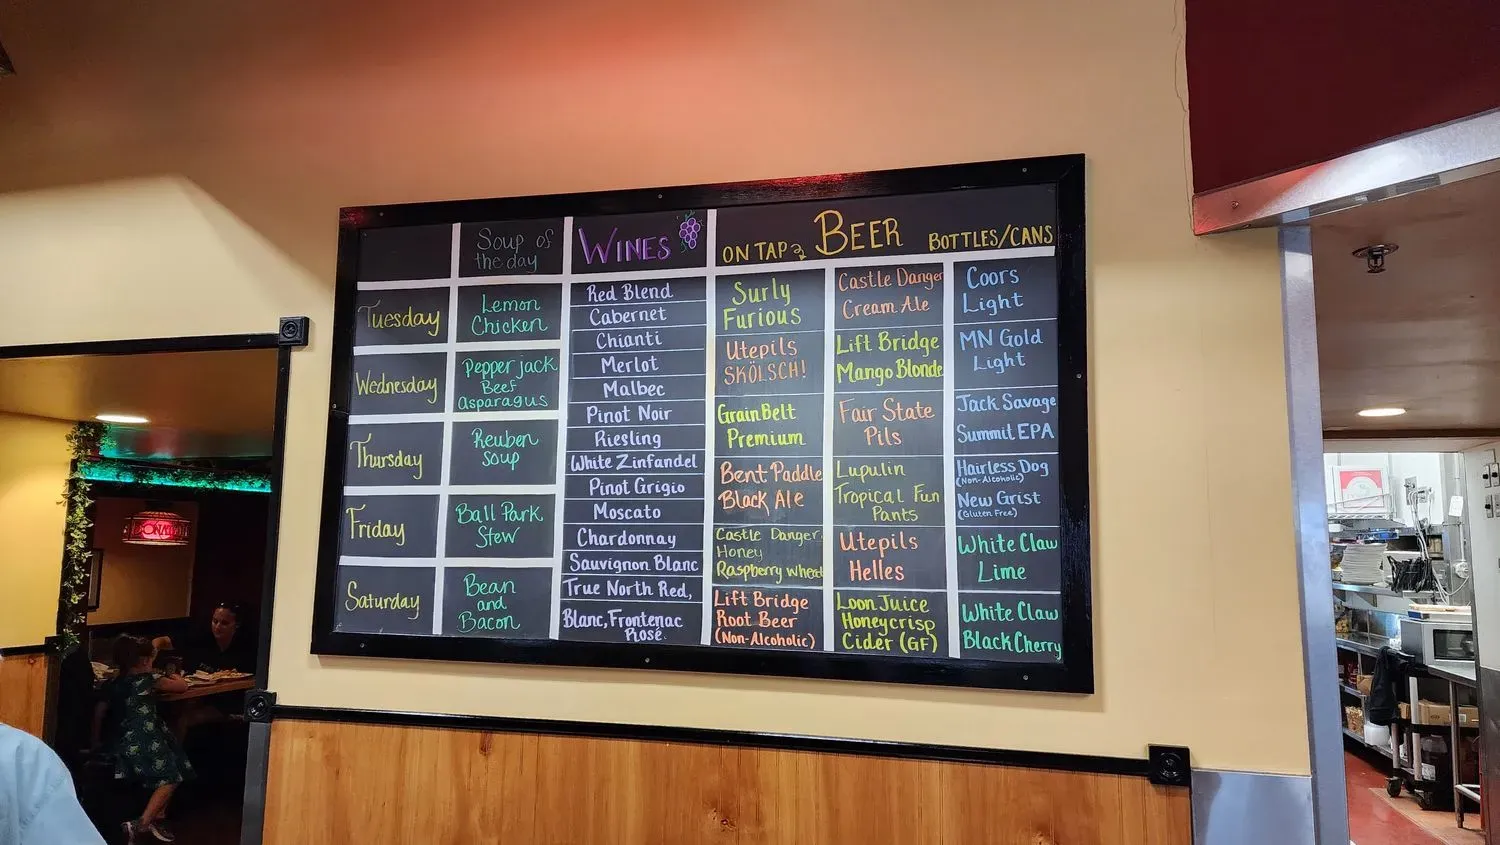 Soup of
the day
WINES
ON TAP
BEER
BOTTLES/CANS
Tuesday
Lemon
Chicken
Wednesday
Pepperjack
Beef
Asparagus
Thursday
Reuben
Soup
Friday
Ball Park
Stew
Saturday
Bean
and
Bacon
Red Blend
Cabernet
Chianti
Merlot
Malbec
Pinot Noir
Riesling
White Zinfandel
Pinot Grigio
Moscato
Chardonnay
Sauvignon Blanc
True North Red,
Blanc, Frontenac
Rosé
Surly
Furious
Utepils
SKÖLSCH!
Grain Belt
Premium
Bent Paddle
Black Ale
Castle Danger
Honey
Raspberry Wheat
Lift Bridge
Root Beer
(Non-Alcoholic)
Castle Danger
Cream Ale
Lift Bridge
Mango Blonde
Fair State
Pils
Lupulin
Tropical Fun
Pants
Utepils
Helles
Loon Juice
Honeycrisp
Cider (GF)
Coors
Light
MN Gold
Light
Jack Savage
Summit EPA
Hairless Dog
(Non-Alcoholic)
New Grist
(Gluten Free)
White Claw
Lime
White Claw
Black Cherry